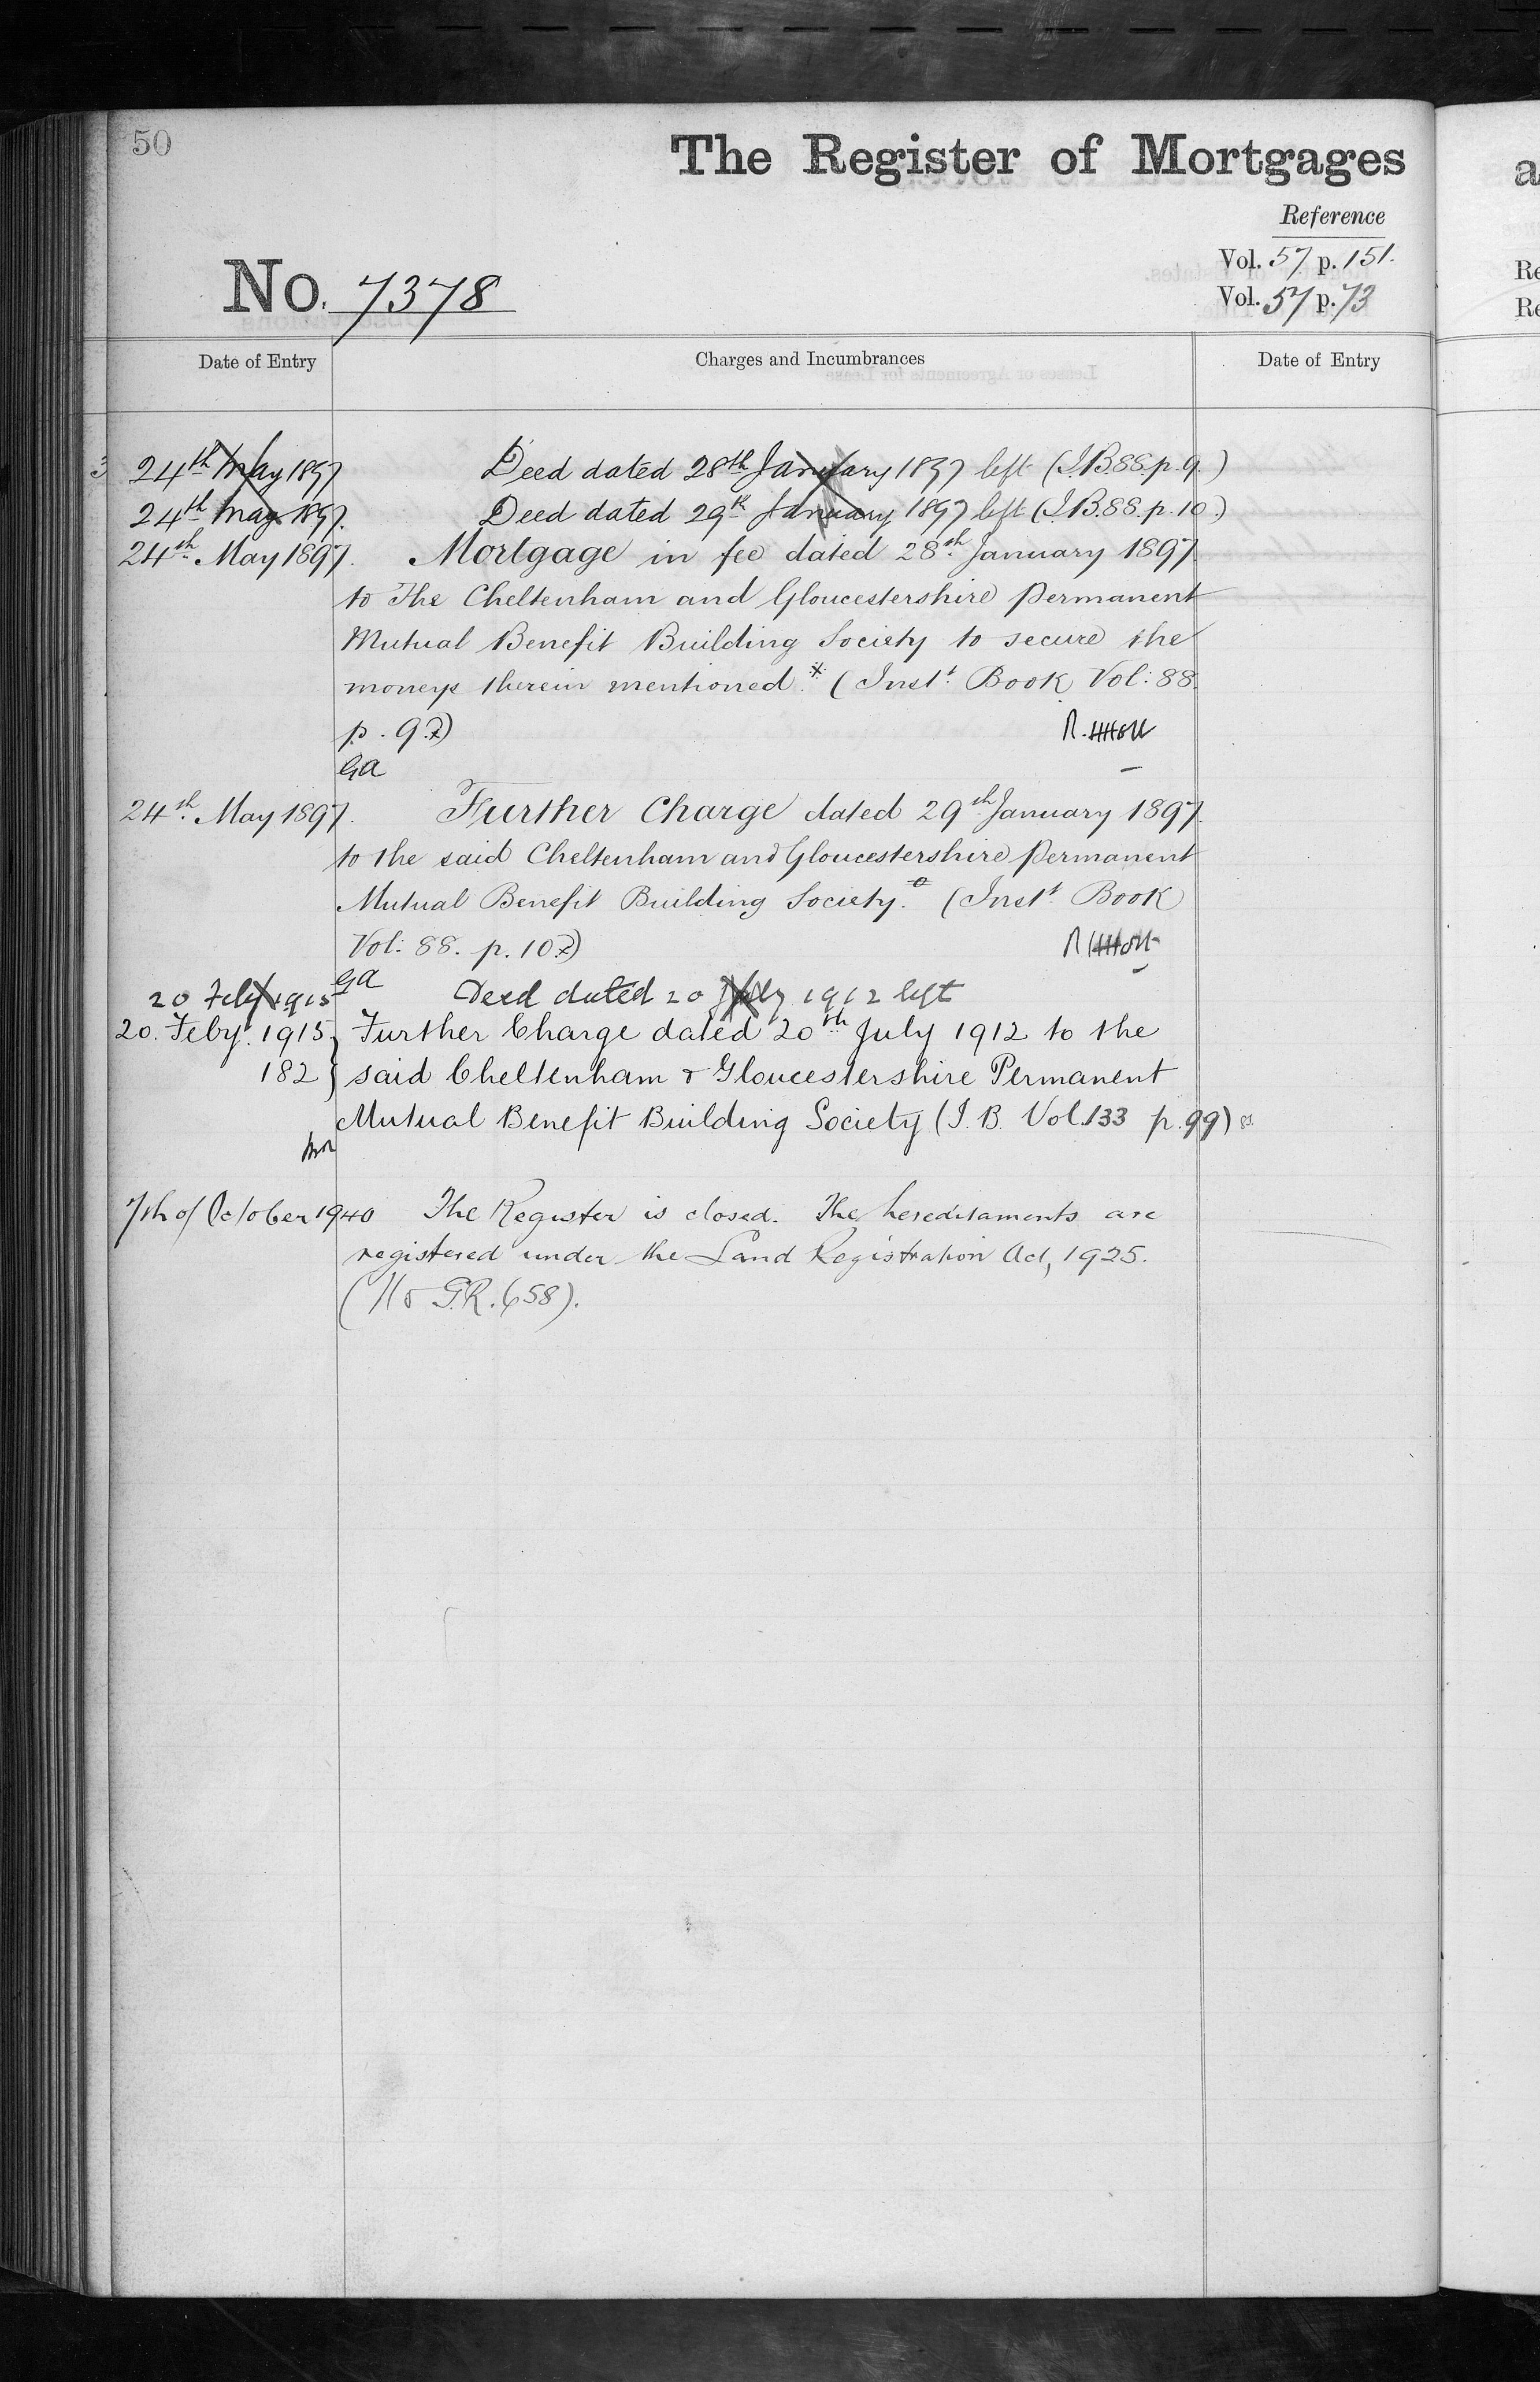 50
The Register of Mortgages
Reference
Vol. 57 p. 151.
Vol. 57 p. 73
No. 7378
Date of Entry Charges and Incumbrances Date of Entry
3 24th May 1897 Deed dated 28th January 1897 left (I.B.88.p.9.)
24th May 1897. Deed dated 29th January 1897 left (I.B.88.p.10.)
24th May 1897. Mortgage in fee dated 28th January 1897.
to The Cheltenham and Gloucestershire Permanent
Mutual Benefit Building Society to secure the
moneys therein mentioned. (Inst. Book Vol: 88.
p. 9.)
GA
24th May 1897. Further Charge dated 29th January 1897.
to the said Cheltenham and Gloucestershire Permanent
Mutual Benefit Building Society. (Inst. Book
Vol: 88. p. 10.)
GA
20 Feby 1915 Deed dated 20 July 1912 left
20. Feby. 1915 } Further Charge dated 20th July 1912 to the
182 } said Cheltenham & Gloucestershire Permanent
Mutual Benefit Building Society (I. B. Vol. 133 p. 99)
7th of October 1940 The Register is closed. The hereditaments are
registered under the Land Registration Act, 1925.
(No G.R. 658).